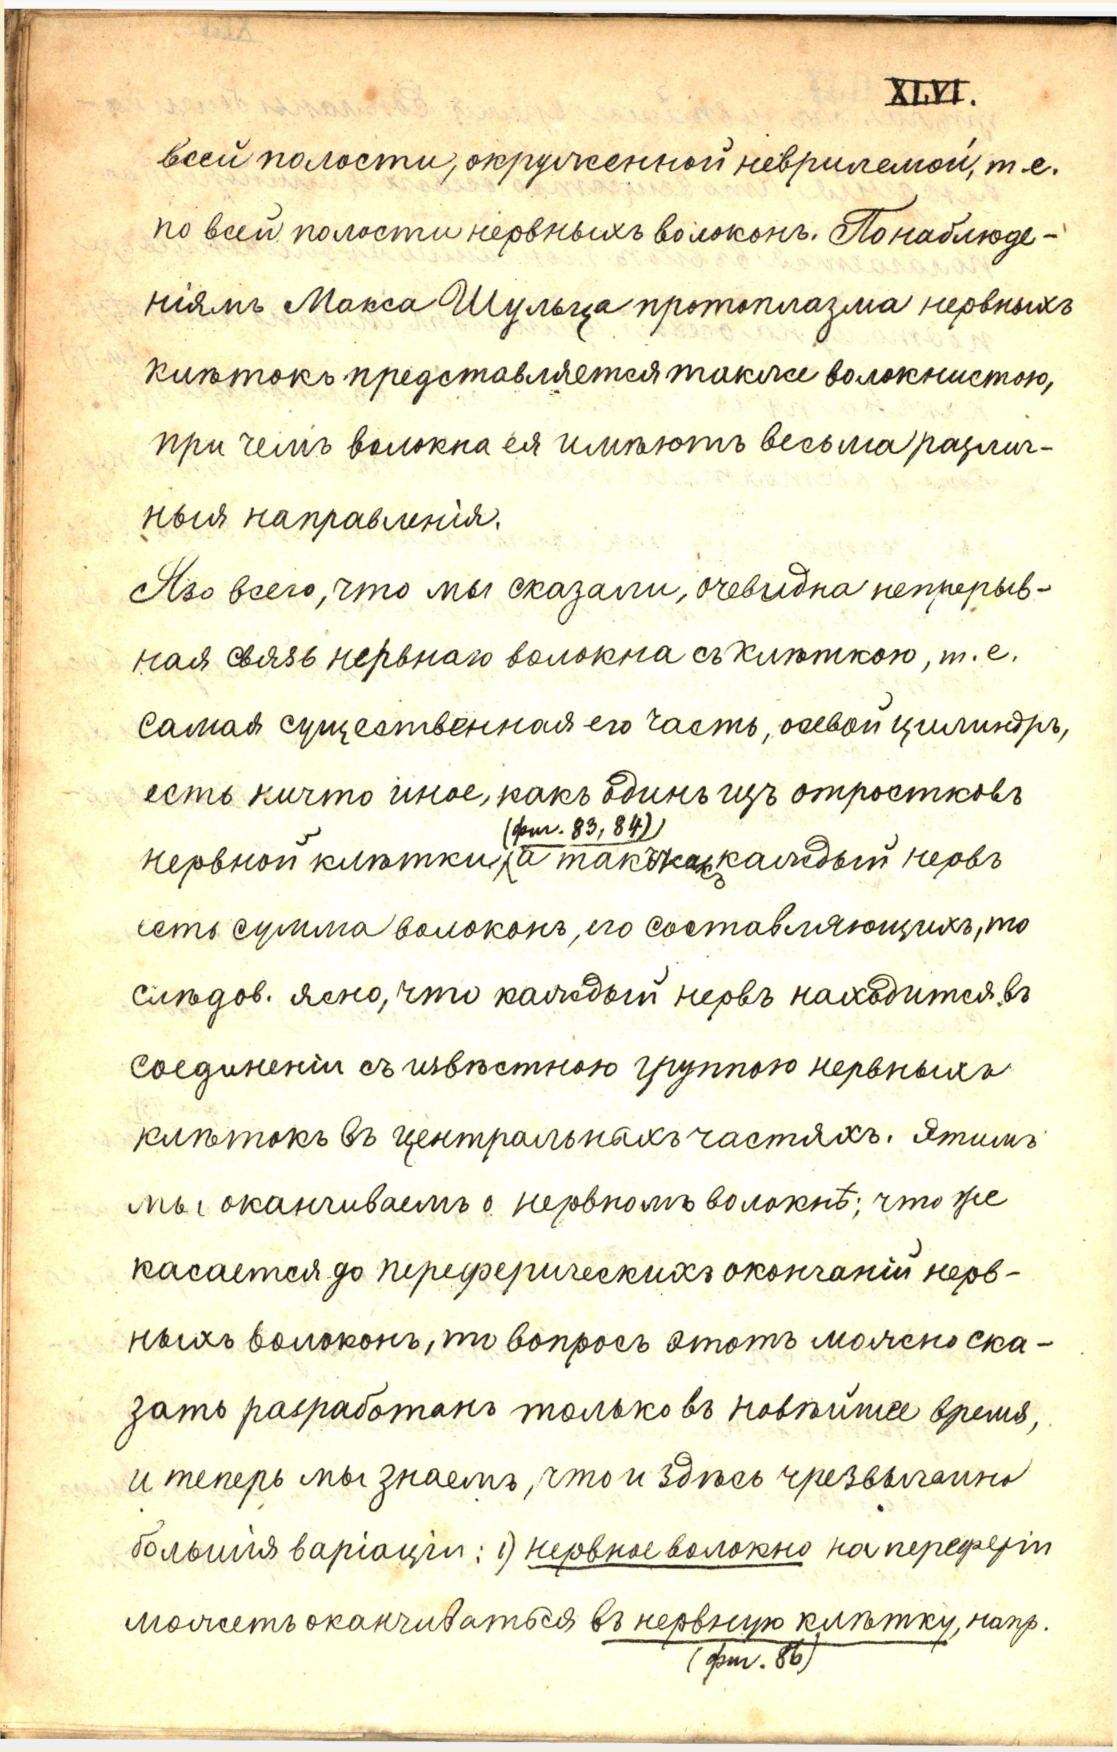 XLVI.
всей полости, окруженной неврилемой, т.е.
по всей полости нервныхъ волоконъ. По наблюде-
ніямъ Макса Шульца протоплазма нервныхъ
клѣтокъ представляется также волокнистою,
при чемъ волокна ея имѣютъ весьма различ-
ныя направленія.
Изо всего, что мы сказали, очевидна непрерыв-
ная связь нервнаго волокна съ клѣткою, т.е.
самая существенная его часть, осевой цилиндръ,
есть ничто иное, какъ одинъ изъ отростковъ
(фиг. 83, 84)
нервной клѣтки, а такъ какъ каждый нервъ
есть сумма волоконъ, его составляющихъ, то
слѣдов. ясно, что каждый нервъ находится въ
соединеніи съ извѣстною группою нервныхъ
клѣтокъ въ центральныхъ частяхъ. Этимъ
мы оканчиваемъ о нервномъ волокнѣ; что же
касается до переферическихъ окончаній нерв-
ныхъ волоконъ, то вопросъ этотъ можно ска-
зать разработанъ только въ новѣйшее время,
и теперь мы знаемъ, что и здѣсь чрезвычайно
большія варіаціи: 1) нервное волокно на переферіи
можетъ оканчиваться въ нервную клѣтку, напр.
(фиг. 86)